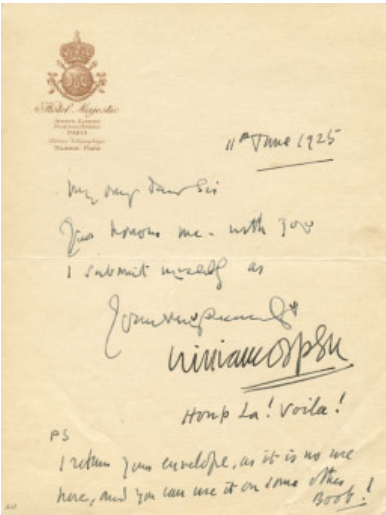 Hôtel Majestic
PARIS
11th June 1925
My very dear Sir
You honour me - with you
I submit myself as
William Orpen
Houp La! Voila!
PS
I return your envelope, as it is no use
here, and you can use it on some other
Boob!